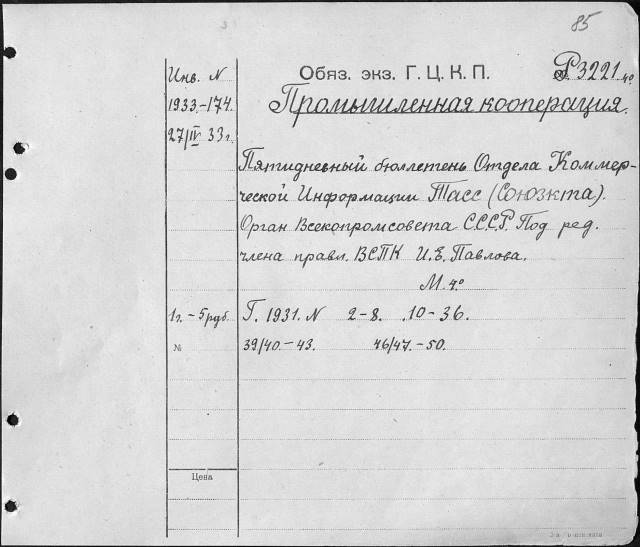 85
Инв. N
Обяз. экз. Г. Ц. К. П.
Р 3221 4°
1933.-174.
Промышленная кооперация.
27/IV 33 г.
Пятидневный бюллетень Отдела Коммер-
ческой Информации Тасс (Союзкта).
Орган Всекопромсовета С.С.С.Р. Под ред.
члена правл. ВСПК И.Е. Павлова.
М. 4°
1 г. - 5 руб.
Г. 1931. N 2-8. 10-36.
№
39/40.-43. 46/47.-50.
Цена